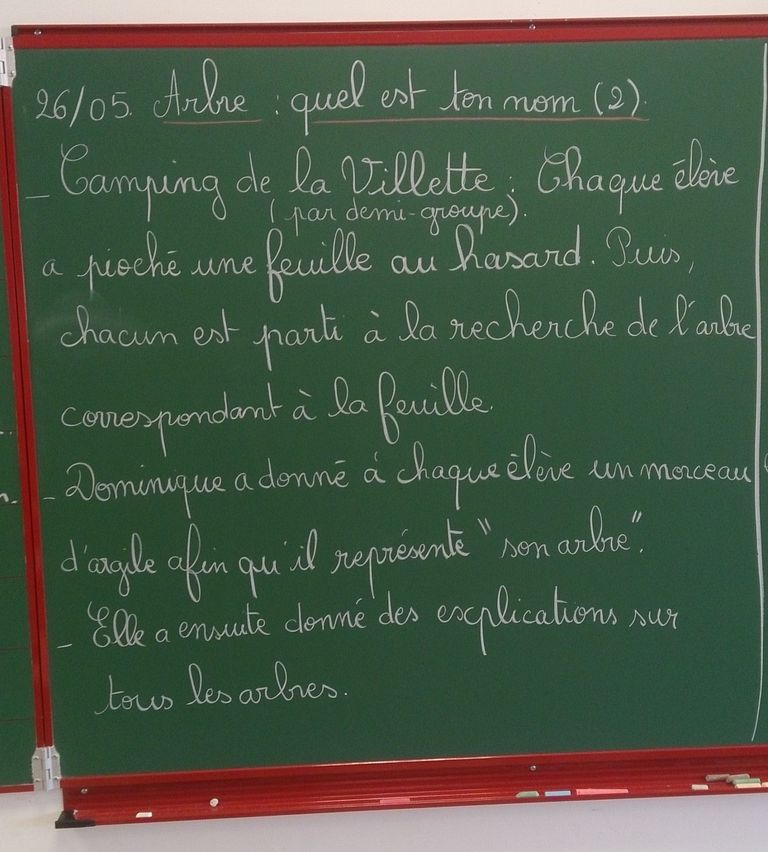 26/05. Arbre : quel est ton nom (2).
_ Camping de la Villette : Chaque élève
(par demi-groupe).
a pioché une feuille au hasard. Puis,
chacun est parti à la recherche de l'arbre
correspondant à la feuille.
- Dominique a donné à chaque élève un morceau
d'argile afin qu'il représente "son arbre".
- Elle a ensuite donné des explications sur
tous les arbres.